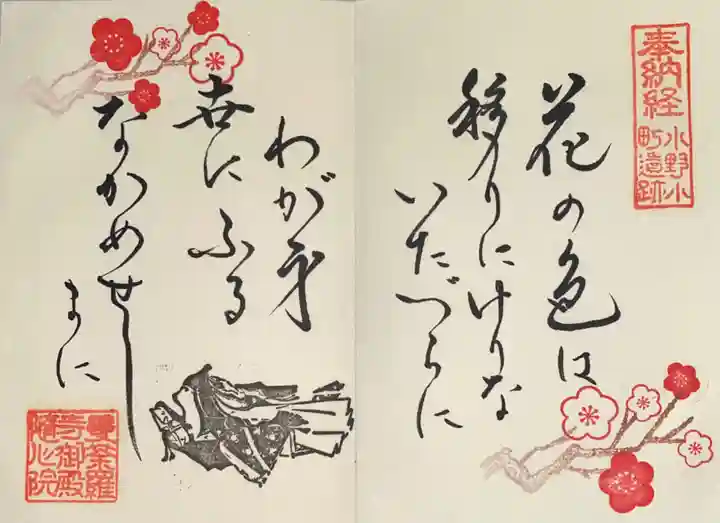 奉納経
小野小
町遺跡
花の色は
移りにけりな
いたづらに
わが身
世にふる
ながめせし
まに
曼荼羅
寺御殿
随心院